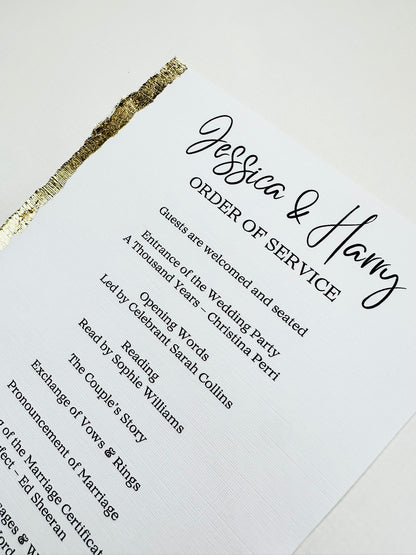 Jessica & Harry
ORDER OF SERVICE
Guests are welcomed and seated
Entrance of the Wedding Party
A Thousand Years – Christina Perri
Opening Words
Led by Celebrant Sarah Collins
Reading
Read by Sophie Williams
The Couple's Story
Exchange of Vows & Rings
Pronouncement of Marriage
of the Marriage Certificat
– Ed Sheeran
&